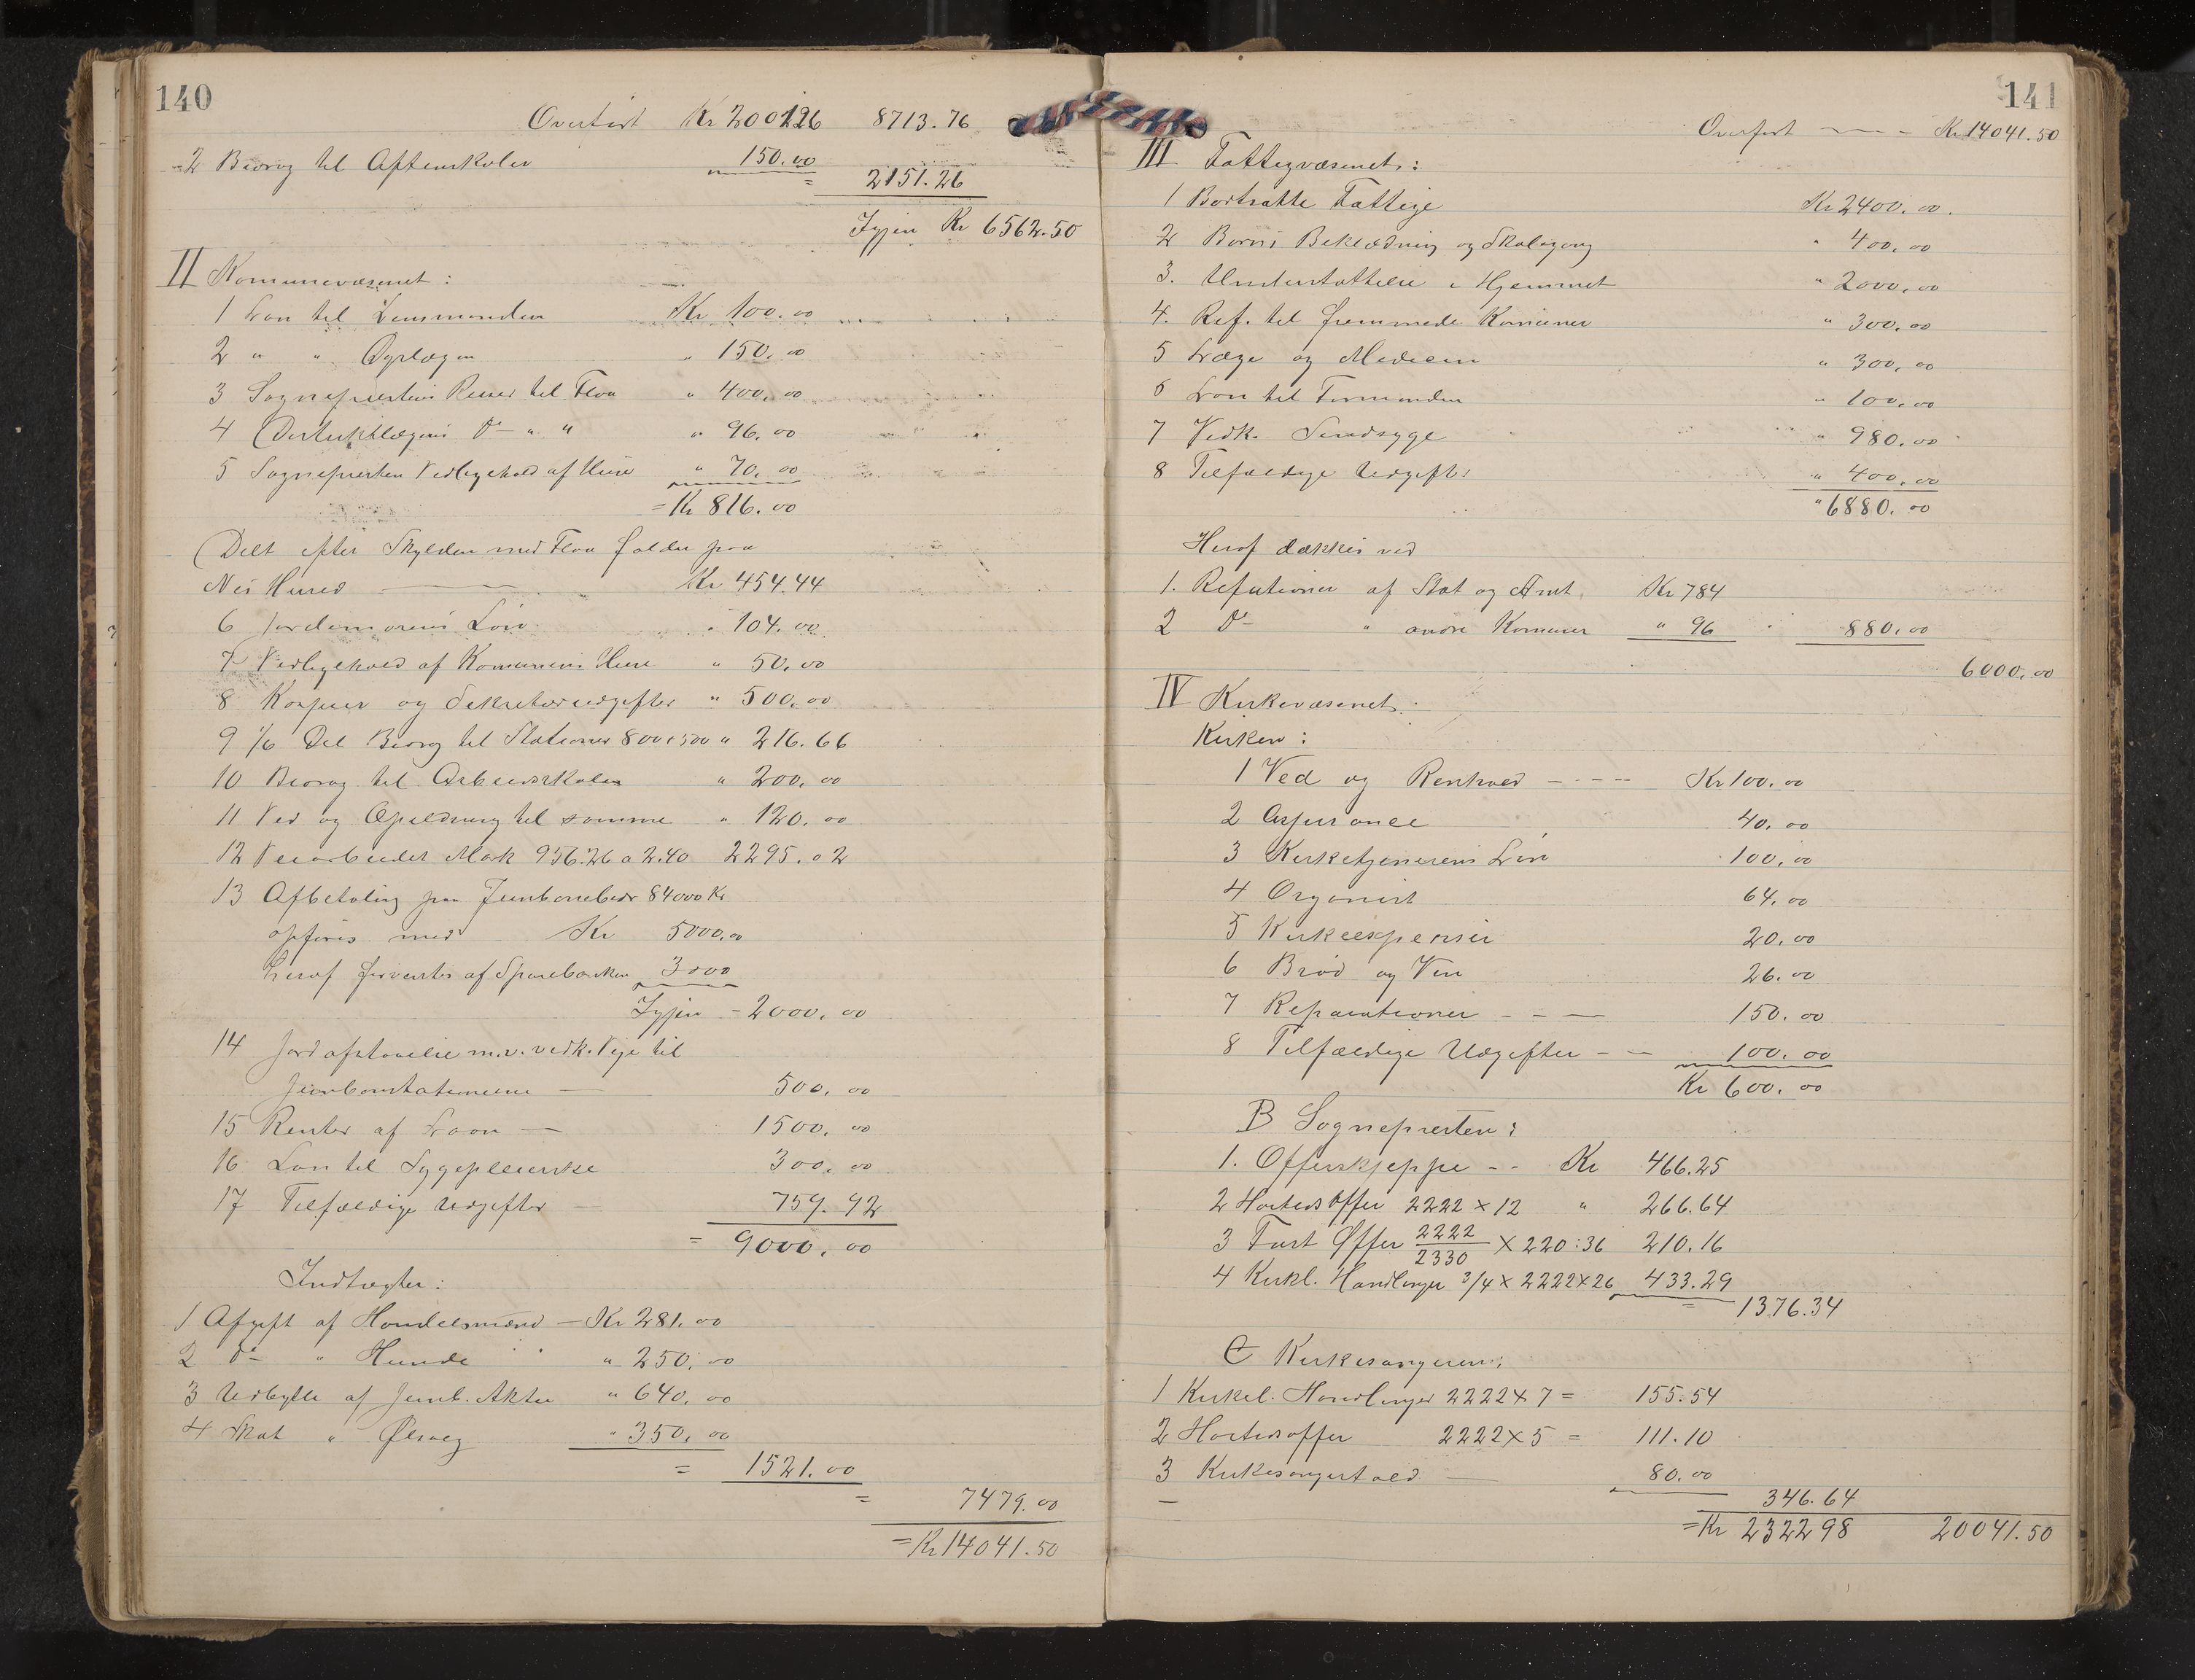 140
Overført Kr 2001.26 8713.76
2 Bidrag til Aftenskoler 150.00
= 2151.26
Igjen Kr 6562.50
II Kommunevæsenet:
1 Løn til Lensmanden Kr 100.00
2 " " Dyrlægen " 150.00
3 Sogneprestens Reiser til Flaa " 400.00
4 Distriktslægens Do " " " 96.00
5 Sognepresten Vedligehold af Huse " 70.00
= Kr 816.00
Delt efter Skylden med Flaa falder paa
Nes Hered Kr 454.44
6 Jordemorens Løn " 104.00
7 Vedligehold af Komunens Huse " 50.00
8 Kasserer og Sekretærudgifter " 500.00
9 1/6 Del Bidrag til Stationer 800+500 " 216.66
10 Bidrag til Arbeidsskolen " 200.00
11 Ved og Opvarmning til samme " 120.00
12 Veiarbeidet Mark 956.26 a 2.40 2295.02
13 Afbetaling paa Jernbanebidr 84000 Kr
opføres med Kr 5000.00
heraf forventes af Sparebanken 3000
Igjen - 2000.00
14 Jordafstaaelse m.v. vedk. Veje til
Jernbanestationerne 500.00
15 Renter af Laan — 1500.00
16 Løn til Sygepleierske 300.00
17 Tilfældige Udgifter — 759.92
= 9000.00
Indtægter:
1 Afgift af Handelsmænd — Kr 281.00
2 Do " Hunde " 250.00
3 Udbytte af Jernb. Aktier " 640.00
4 Skat " Ølsalg " 350.00
= 1521.00
= 7479.00
= Kr 14041.50
141
Overført — Kr 14041.50
III Fattigvæsenet:
1 Bortsatte Fattige Kr 2400.00
2 Børns Beklædning og Skolegang " 400.00
3. Understøttelse i Hjemmet " 2000.00
4. Ref. til fremmede Komuner " 300.00
5 Læge og Medicin " 300.00
6 Løn til Formanden " 100.00
7 Vedk. Sindsyge " 980.00
8 Tilfældige Udgifter " 400.00
" 6880.00
Heraf dækkes ved
1. Refutioner af Stat og Amt Kr 784
2 Do " andre Komuner " 96 880.00
6000.00
IV Kirkevæsenet:
Kirken:
1 Ved og Renhold ---- Kr 100.00
2 Assurance 40.00
3 Kirketjenerens Løn 100.00
4 Organist 64.00
5 Kirkeexpenser 20.00
6 Brød og Vin 26.00
7 Reparationer --- 150.00
8 Tilfældige Udgifter -- 100.00
Kr 600.00
B Sognepresten:
1. Offerskjeppe -- Kr 466.25
2 Høitidsoffer 2222 × 12 " 266.64
3 Fast Offer 2222/2330 × 220:36 210.16
4 Kirkl. Handlinger 3/4 × 2222 × 26 433.29
= 1376.34
C Kirkesangeren:
1 Kirkel. Handlinger 2222 × 7 = 155.54
2 Høitidsoffer 2222 × 5 = 111.10
3 Kirkesangertold — 80.00
346.64
= Kr 2322 98 20041.50